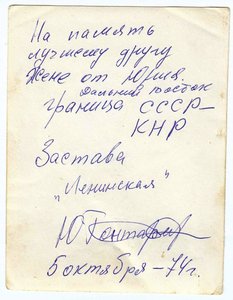 На память
лучшему другу
Жене от Юрия.
Дальний восток
граница СССР-
КНР
Застава
"Ленинская"
5 октября - 74г.